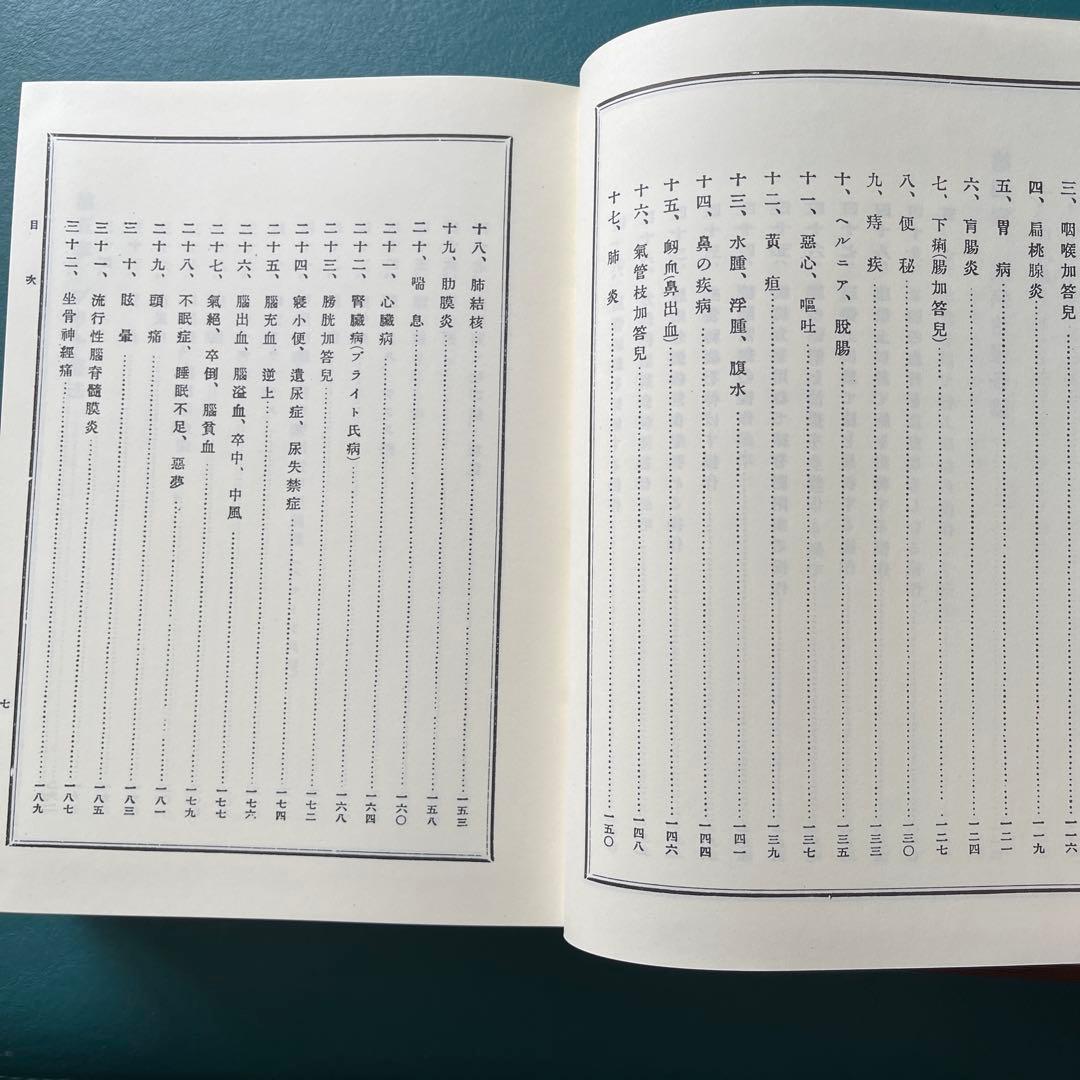 三、咽喉加答兒……一一六
四、扁桃腺炎……一一九
五、胃病……一二一
六、盲腸炎……一二四
七、下痢(腸加答兒)……一二七
八、便秘……一三〇
九、痔疾……一三三
十、ヘルニア、脱腸……一三五
十一、惡心、嘔吐……一三七
十二、黄疸……一三九
十三、水腫、浮腫、腹水……一四一
十四、鼻の疾病……一四四
十五、衂血(鼻出血)……一四六
十六、氣管枝加答兒……一四八
十七、肺炎……一五〇
十八、肺結核……一五三
十九、肋膜炎……一五八
二十、喘息……一六〇
二十一、心臓病……一六四
二十二、腎臓病(ブライト氏病)……一六八
二十三、膀胱加答兒……一七二
二十四、寢小便、遺尿症、尿失禁症……一七四
二十五、腦充血、逆上……一七六
二十六、腦出血、腦溢血、卒中、中風……一七七
二十七、氣絕、卒倒、腦貧血……一七九
二十八、不眠症、睡眠不足、惡夢……一八一
二十九、頭痛……一八三
三十、眩暈……一八五
三十一、流行性腦脊髓膜炎……一八七
三十二、坐骨神經痛……一八九
目次
七